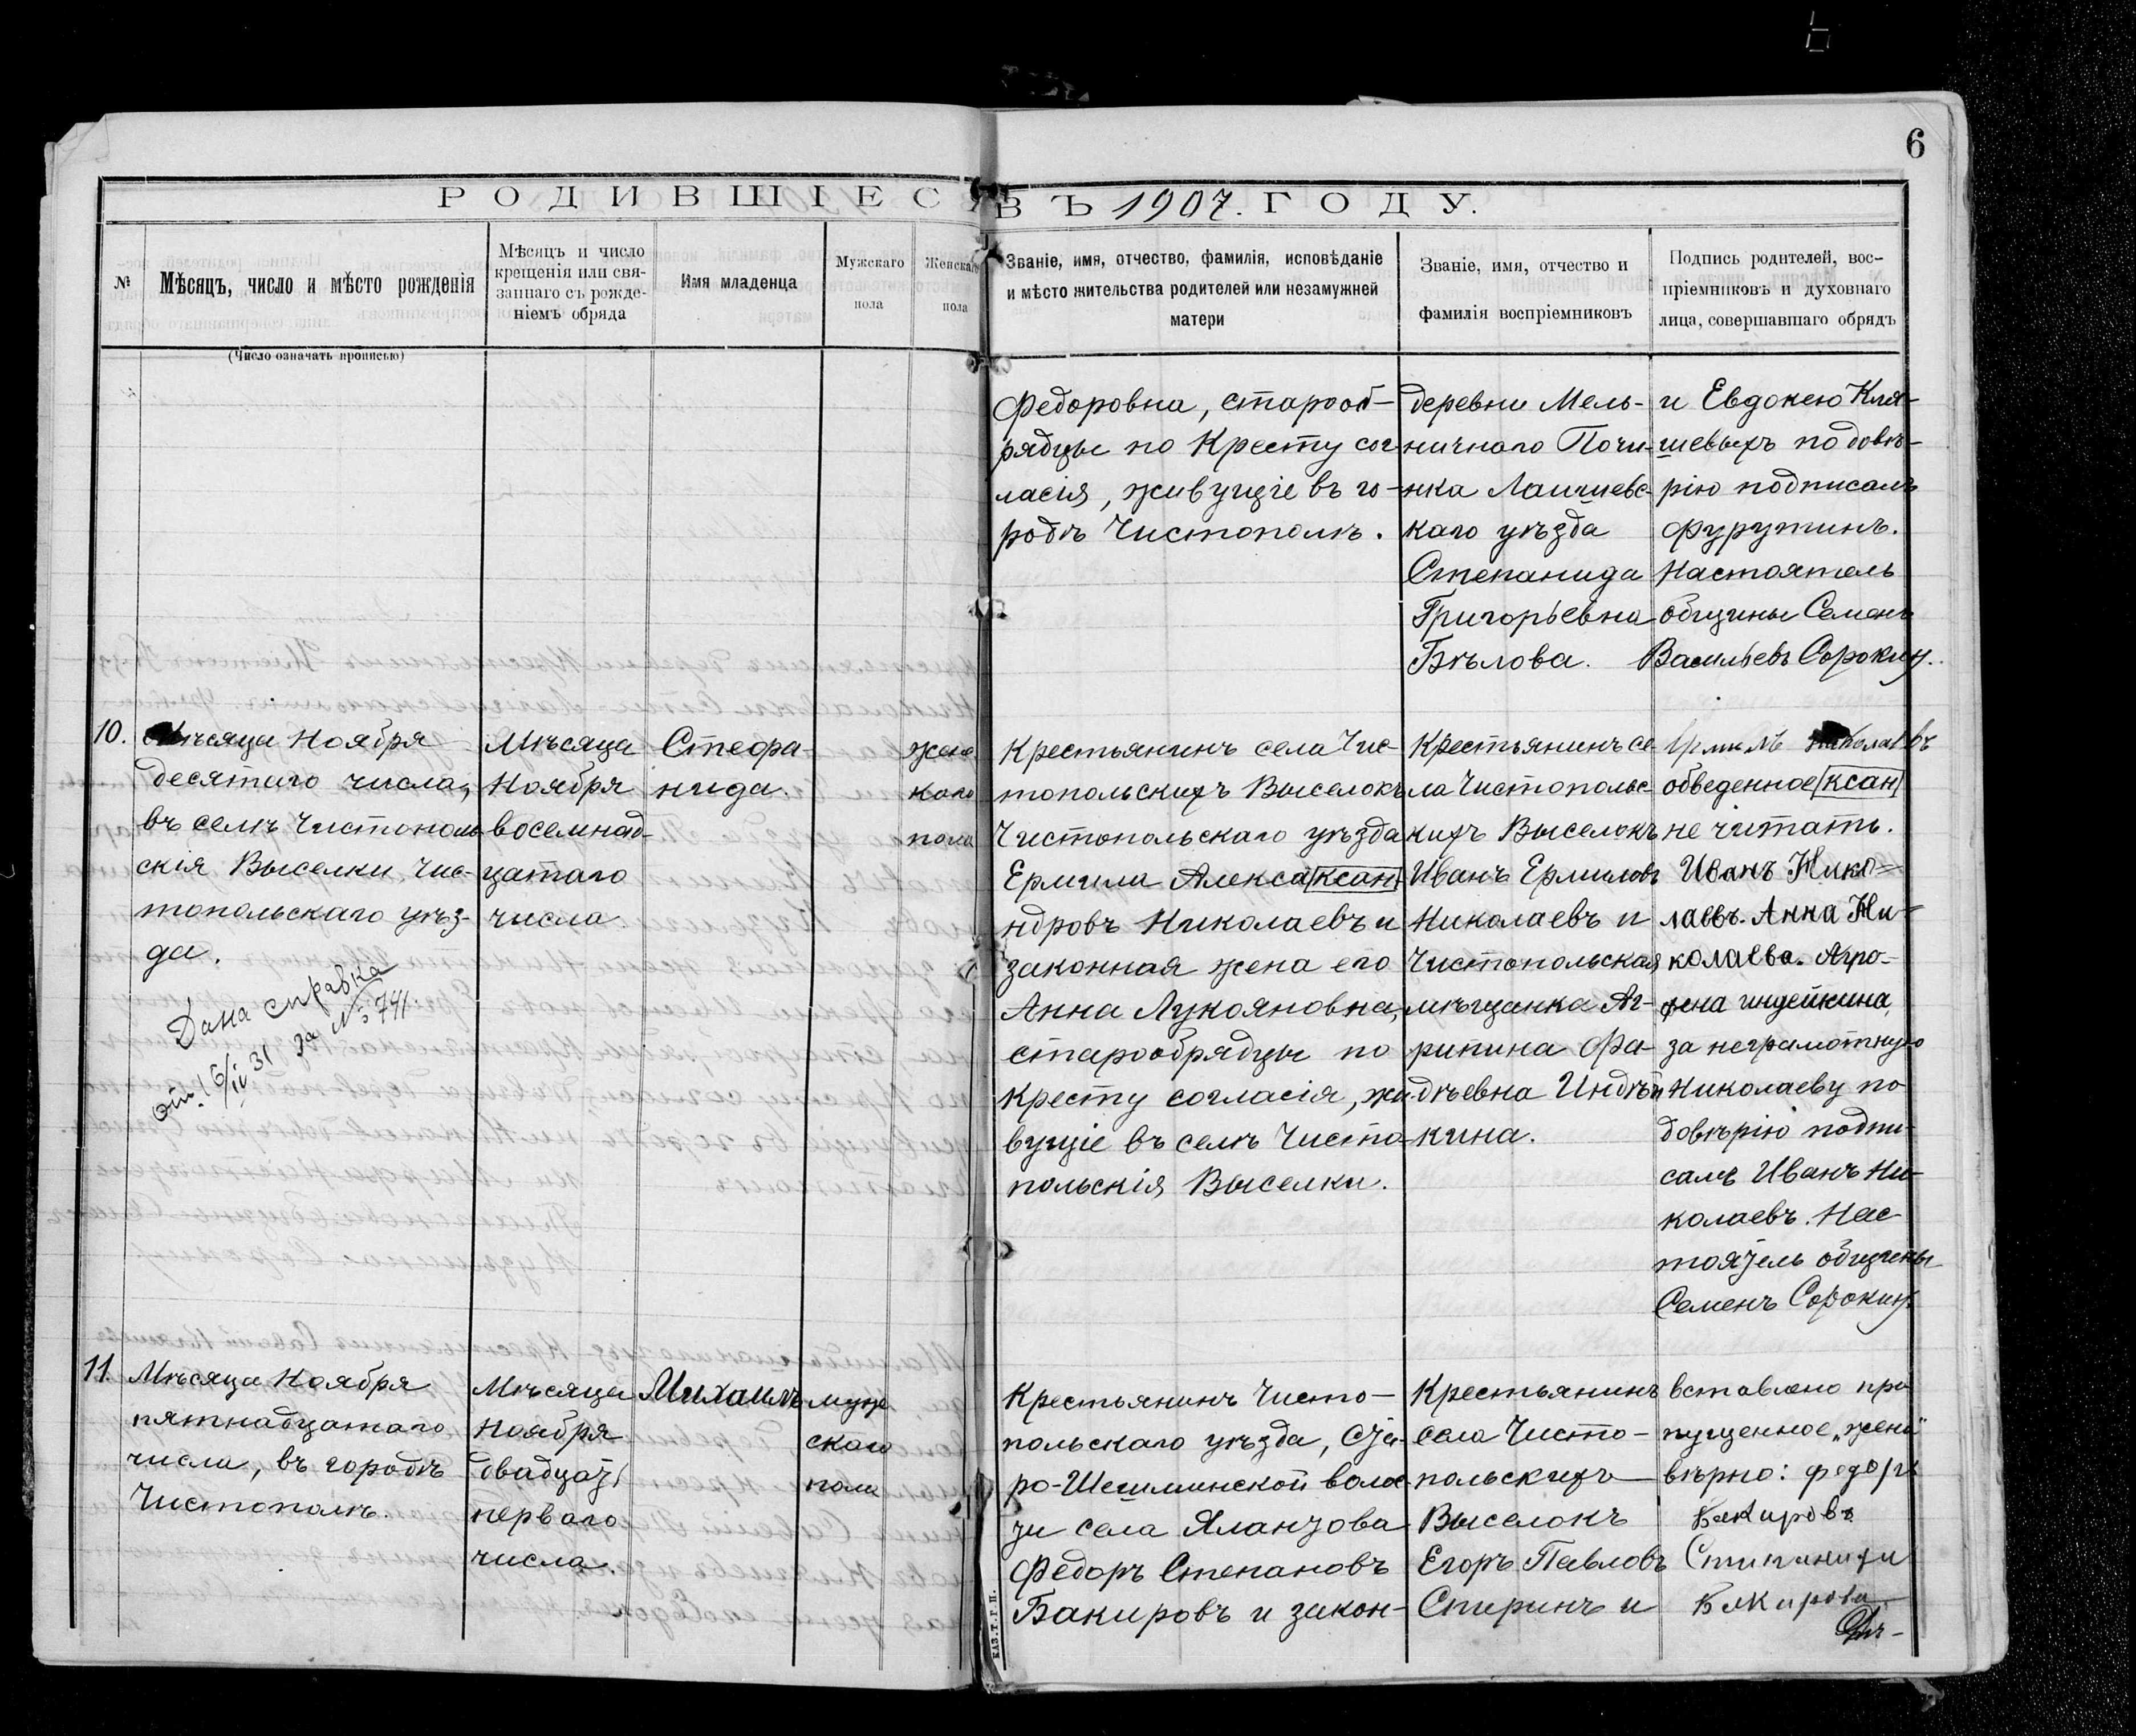 6
РОДИВШІЕСЯ ВЪ 1907. ГОДУ.
№
Мѣсяцъ, число и мѣсто рожденія
(Число означать прописью)
Мѣсяцъ и число
крещенія или свя-
заннаго съ рожде-
ніемъ обряда
Имя младенца
Мужскаго
пола
Женскаго
пола
Званіе, имя, отчество, фамилія, исповѣданіе
и мѣсто жительства родителей или незамужней
матери
Званіе, имя, отчество и
фамилія воспріемниковъ
Подпись родителей, вос-
пріемниковъ и духовнаго
лица, совершавшаго обрядъ
Федоровна, старооб-
рядцы по Кресту сог-
ласія, живущіе въ го-
родѣ Чистополѣ.
деревни Мель-
ничнаго Почи-
нка Лаишевс-
каго уѣзда
Степанида
Григорьевна
Бѣлова.
и Евдокею Кля-
шевыхъ по довѣ-
рію подписалъ
Фурутинъ.
Настоятель
общины Семенъ
Васильевъ Сорокин.
10.
Мѣсяца Ноября
десятаго числа,
въ селѣ Чистополь-
скія Выселки Чис-
топольскаго уѣз-
да.
Дана справка
от 16/IV 31 за № 741.
Мѣсяца
Ноября
восемнад-
цатаго
числа.
Стефа-
нида.
женс
каго
пола
Крестьянинъ села Чис-
топольскихъ Выселокъ
Чистопольскаго уѣзда
Ермила Алекса ксан
ндровъ Николаевъ и
законная жена его
Анна Лукояновна,
старообрядцы по
Кресту согласія, жи-
вущіе въ селѣ Чисто-
польскія Выселки.
Крестьянинъ се-
ла Чистопольс-
кихъ Выселокъ
Иванъ Ермиловъ
Николаевъ и
Чистопольская
мѣщанка Аг-
рипина Фа-
дѣевна Индѣй
кина.
Ермилъ Николаевъ
обведенное ксан
не читать.
Иванъ Нико-
лаевъ. Анна Ни-
колаева. Агро-
фена индейкина,
за неграмотную
Николаеву по
довѣрію подпи-
салъ Иванъ Ни-
колаевъ. Нас
тоятель общины
Семенъ Сорокин
11.
Мѣсяца Ноября
пятнадцатаго
числа, въ городѣ
Чистополѣ.
Мѣсяца
Ноября
двадцать
перваго
числа.
Михаилъ
муж
скаго
пола
Крестьянинъ Чисто-
польскаго уѣзда, Ста-
ро-Шешминской волос-
ти села Яланзова
Федоръ Степановъ
Бакировъ и закон-
Крестьянинъ
села Чисто-
польскихъ
Выселокъ
Егоръ Павловъ
Спиринъ и
вставлено про
пущенное „жена"
вѣрно: Федоръ
Бакировъ
Бакирова
КАЗ. Т. Г. П.